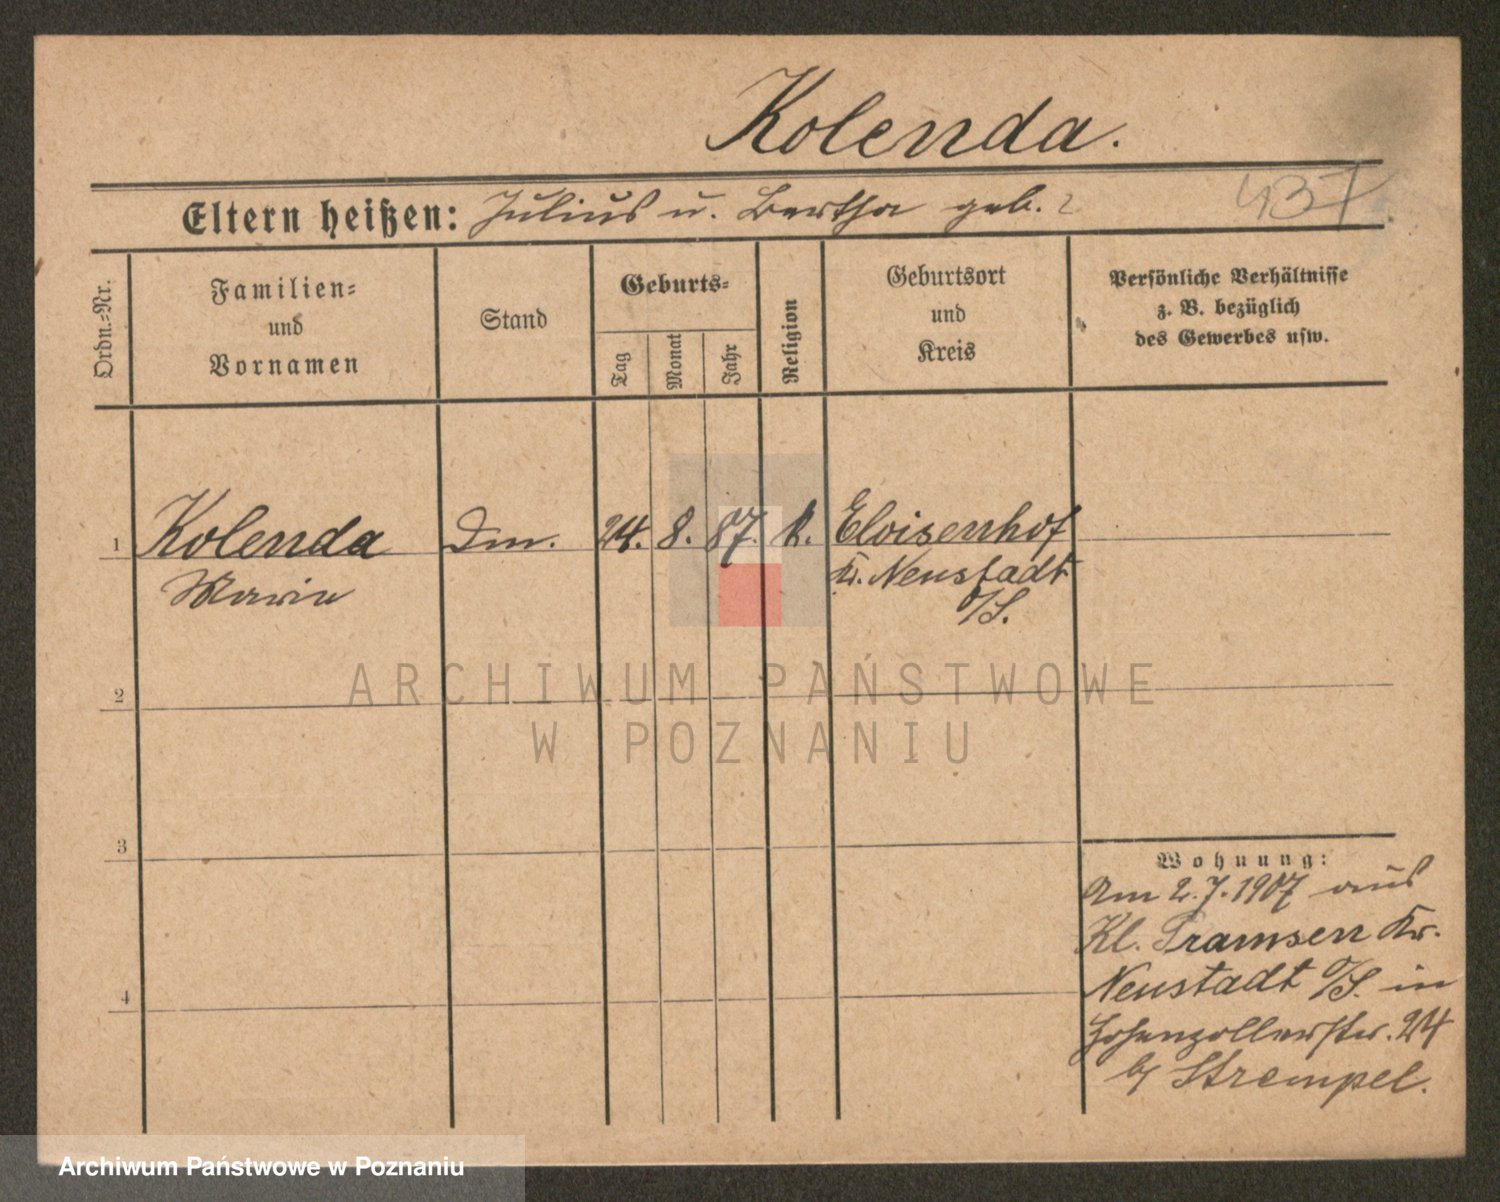 Kolenda.
437
Eltern heißen: Julius u. Bertha geb. ?
Ordn.=Nr.
Familien=
und
Vornamen
Stand
Geburts=
Tag
Monat
Jahr
Religion
Geburtsort
und
Kreis
Persönliche Verhältnisse
z. B. bezüglich
des Gewerbes usw.
1 Kolenda Dm. 24. 8. 87. k. Eloisenhof
Marie Kr. Neustadt
O/S.
2
3
4
Wohnung:
Am 2.7.1907 aus
Kl. Pramsen Kr.
Neustadt O/S. in
Hohenzollernstr. 24
b/ Strempel.
ARCHIWUM PAŃSTWOWE
W POZNANIU
Archiwum Państwowe w Poznaniu